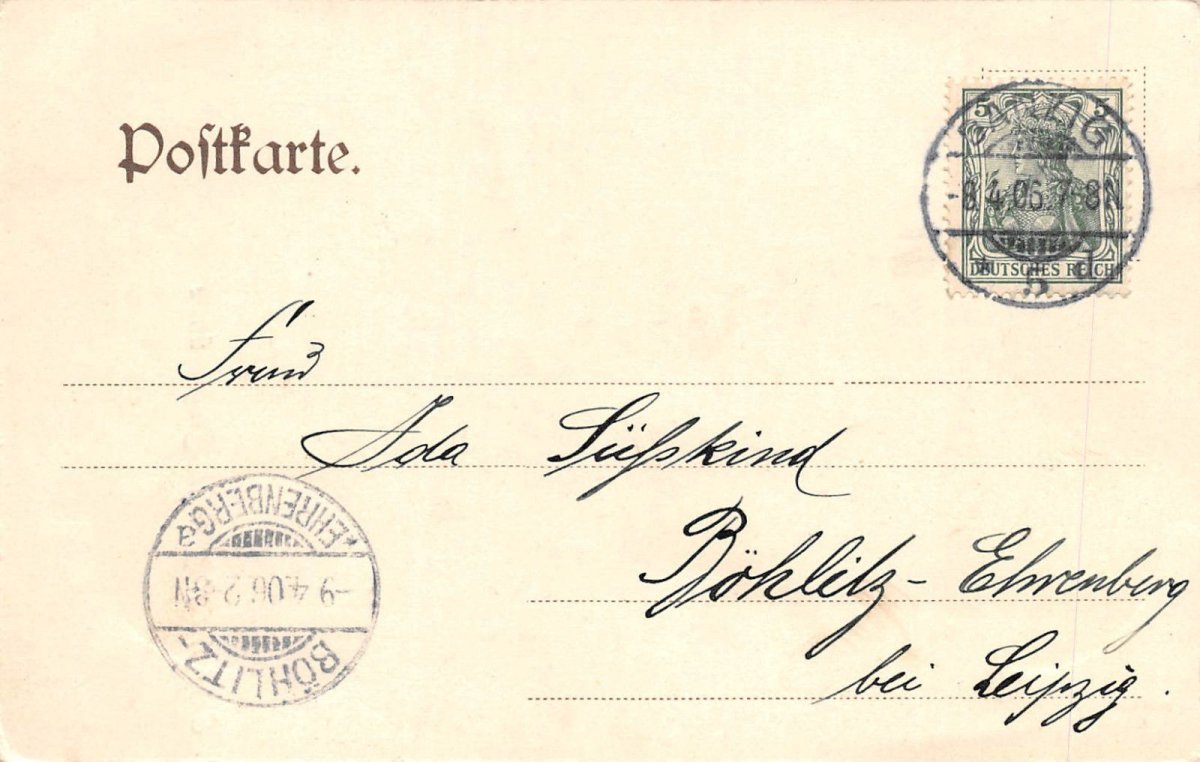 Poſtkarte.
5 5
DANZIG
-8.4.06.7-8N
* 5 d
DEUTSCHES REICH
Ida Süſskind
Böhlitz-Ehrenberg
bei Leipzig.
BÖHLITZ-
-9.4.06.2-3N
EHRENBERG a